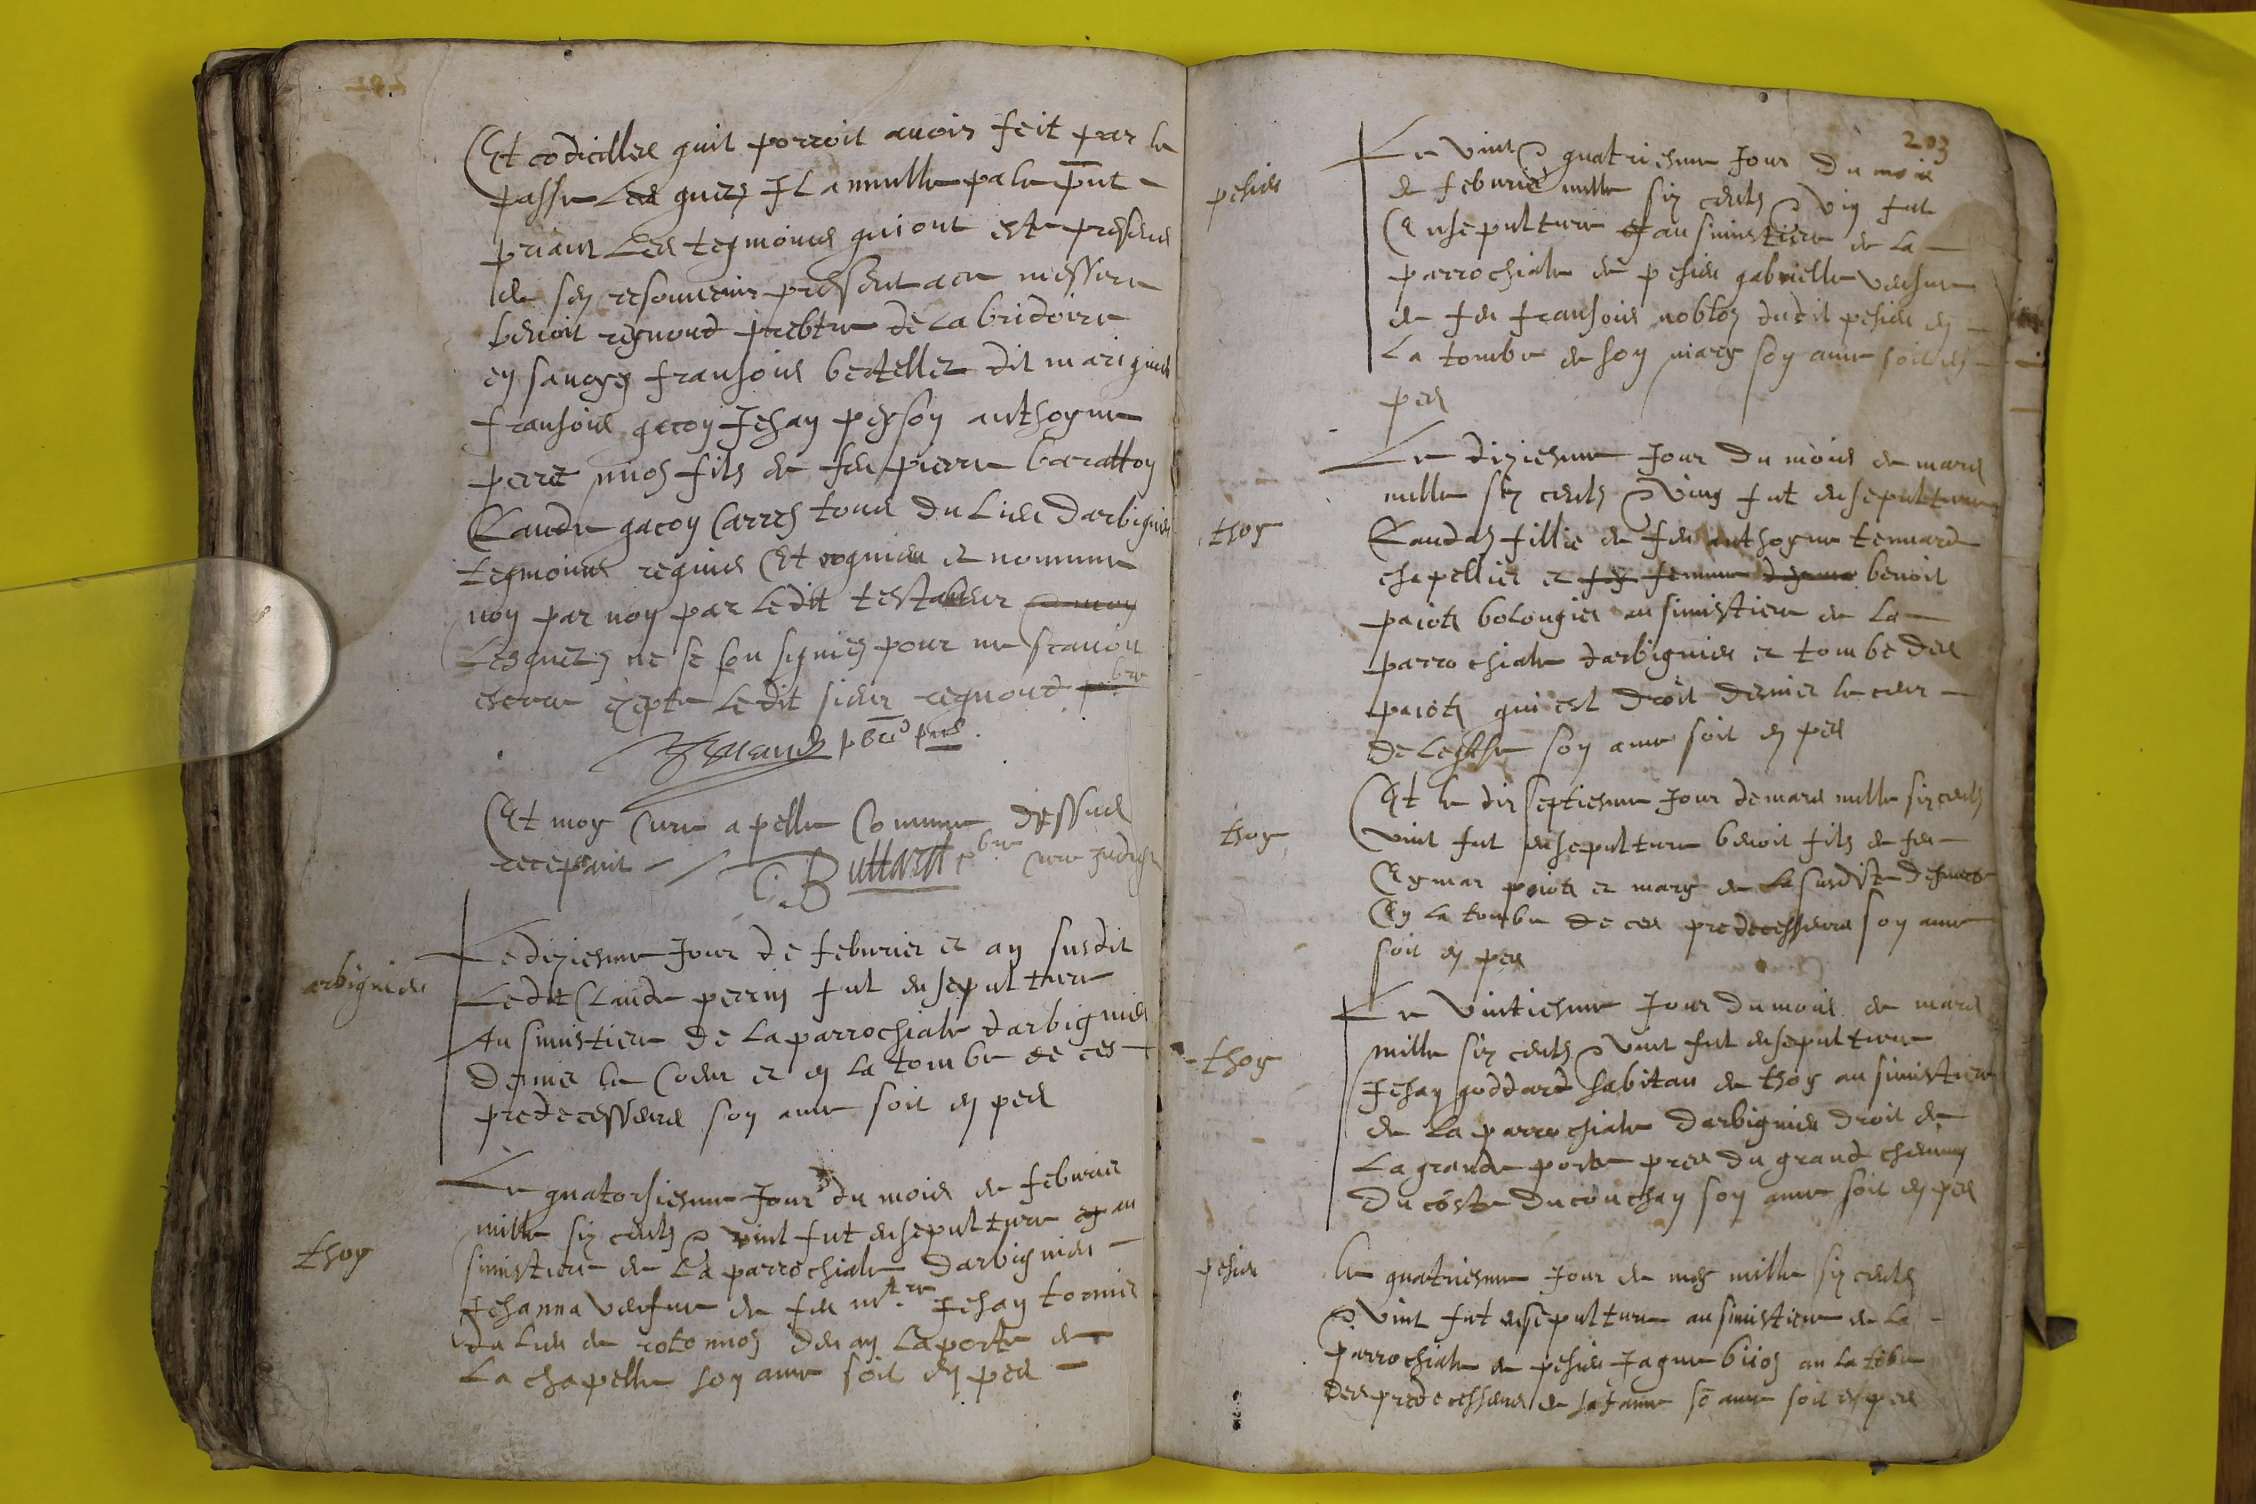 Et codicilles quil porroit avoir feit par le
passe les quez Il annulle pa le pnt
priant les tegmoins qui ont este presens
de sen resouvenir present a ce messere
benoit reynoud prebtre de la bridoire
en savoye fransois bertellet dit
fransois gacon Jehan peyson anthoyne
perret fils de feu pierre baratton
Claude gacon tous du lieu darbignieu
tegmoins requis Et cognieu et nomme
non par non par ledit testateur
Lesquez ne se son signiez pour ne scavoir
escrire exepte ledit sieur reynoud
pbre pnt
Et moy Cure apelle Comme dessus
recepvant
C. Buttard pbre cure
arbignieu
Le diziesme Jour de febvrier et an susdit
Ledit Claude perrin fut ensepulture
Au simistiere de la parrochiale darbignieu
dernier le coeur et en la tombe de ces
predecesseurs son ame soit en pes
thoy
Le quatorsiesme Jour du mois de febvrier
mille siz cents & vint fut ensepulture au
simistiere de la parrochiale darbignieu
Jehanna vesfve de feu mtre Jehan tornier
du lieu de devan la porte de
La chapelle son ame soit en pes
203
pesieu
Le vint & quatriesme Jour du mois
de febvrier mille siz cents & vin fut
Ensepulture au simistiere de la
parrochiale de pesieu gabrielle vesfve
de feu fransois dudit pesieu en
La tombe de son mary son ame soit en
pes
thoy
Le diziesme Jour du mois de mars
mille siz cents & vint fut ensepulture
Claudaz fillie de feu anthoyne tennard
chapellier et femme benoit
paiot bolongier au simistiere de la
parrochiale darbignieu et tombe des
paiotz qui est droit dernier le coeur
de leglise son ame soit en pes
thoy
Et le dix septiesme Jour de mars mille siz cents
vint fut ensepulture benoit fils de feu
Eymar paiot et mary de la susdite
En la tombe de ces predecesseurs son ame
soit en pes
thoy
Le vintiesme Jour du mois de mars
mille siz cents & vint fut ensepulture
Jehan goddard habitan de thoy au simistiere
de la parrochiale darbignieu droit de
La grande porte pres du grand chemin
Du coste du couchan son ame soit en pes
pesieu
le quatriesme Jour de may mille siz cents
& vint fut ensepulture au simistiere de la
parrochiale de pesieu Jaque an la tobe
des predecesseurs de sa fame so ame soit en pes